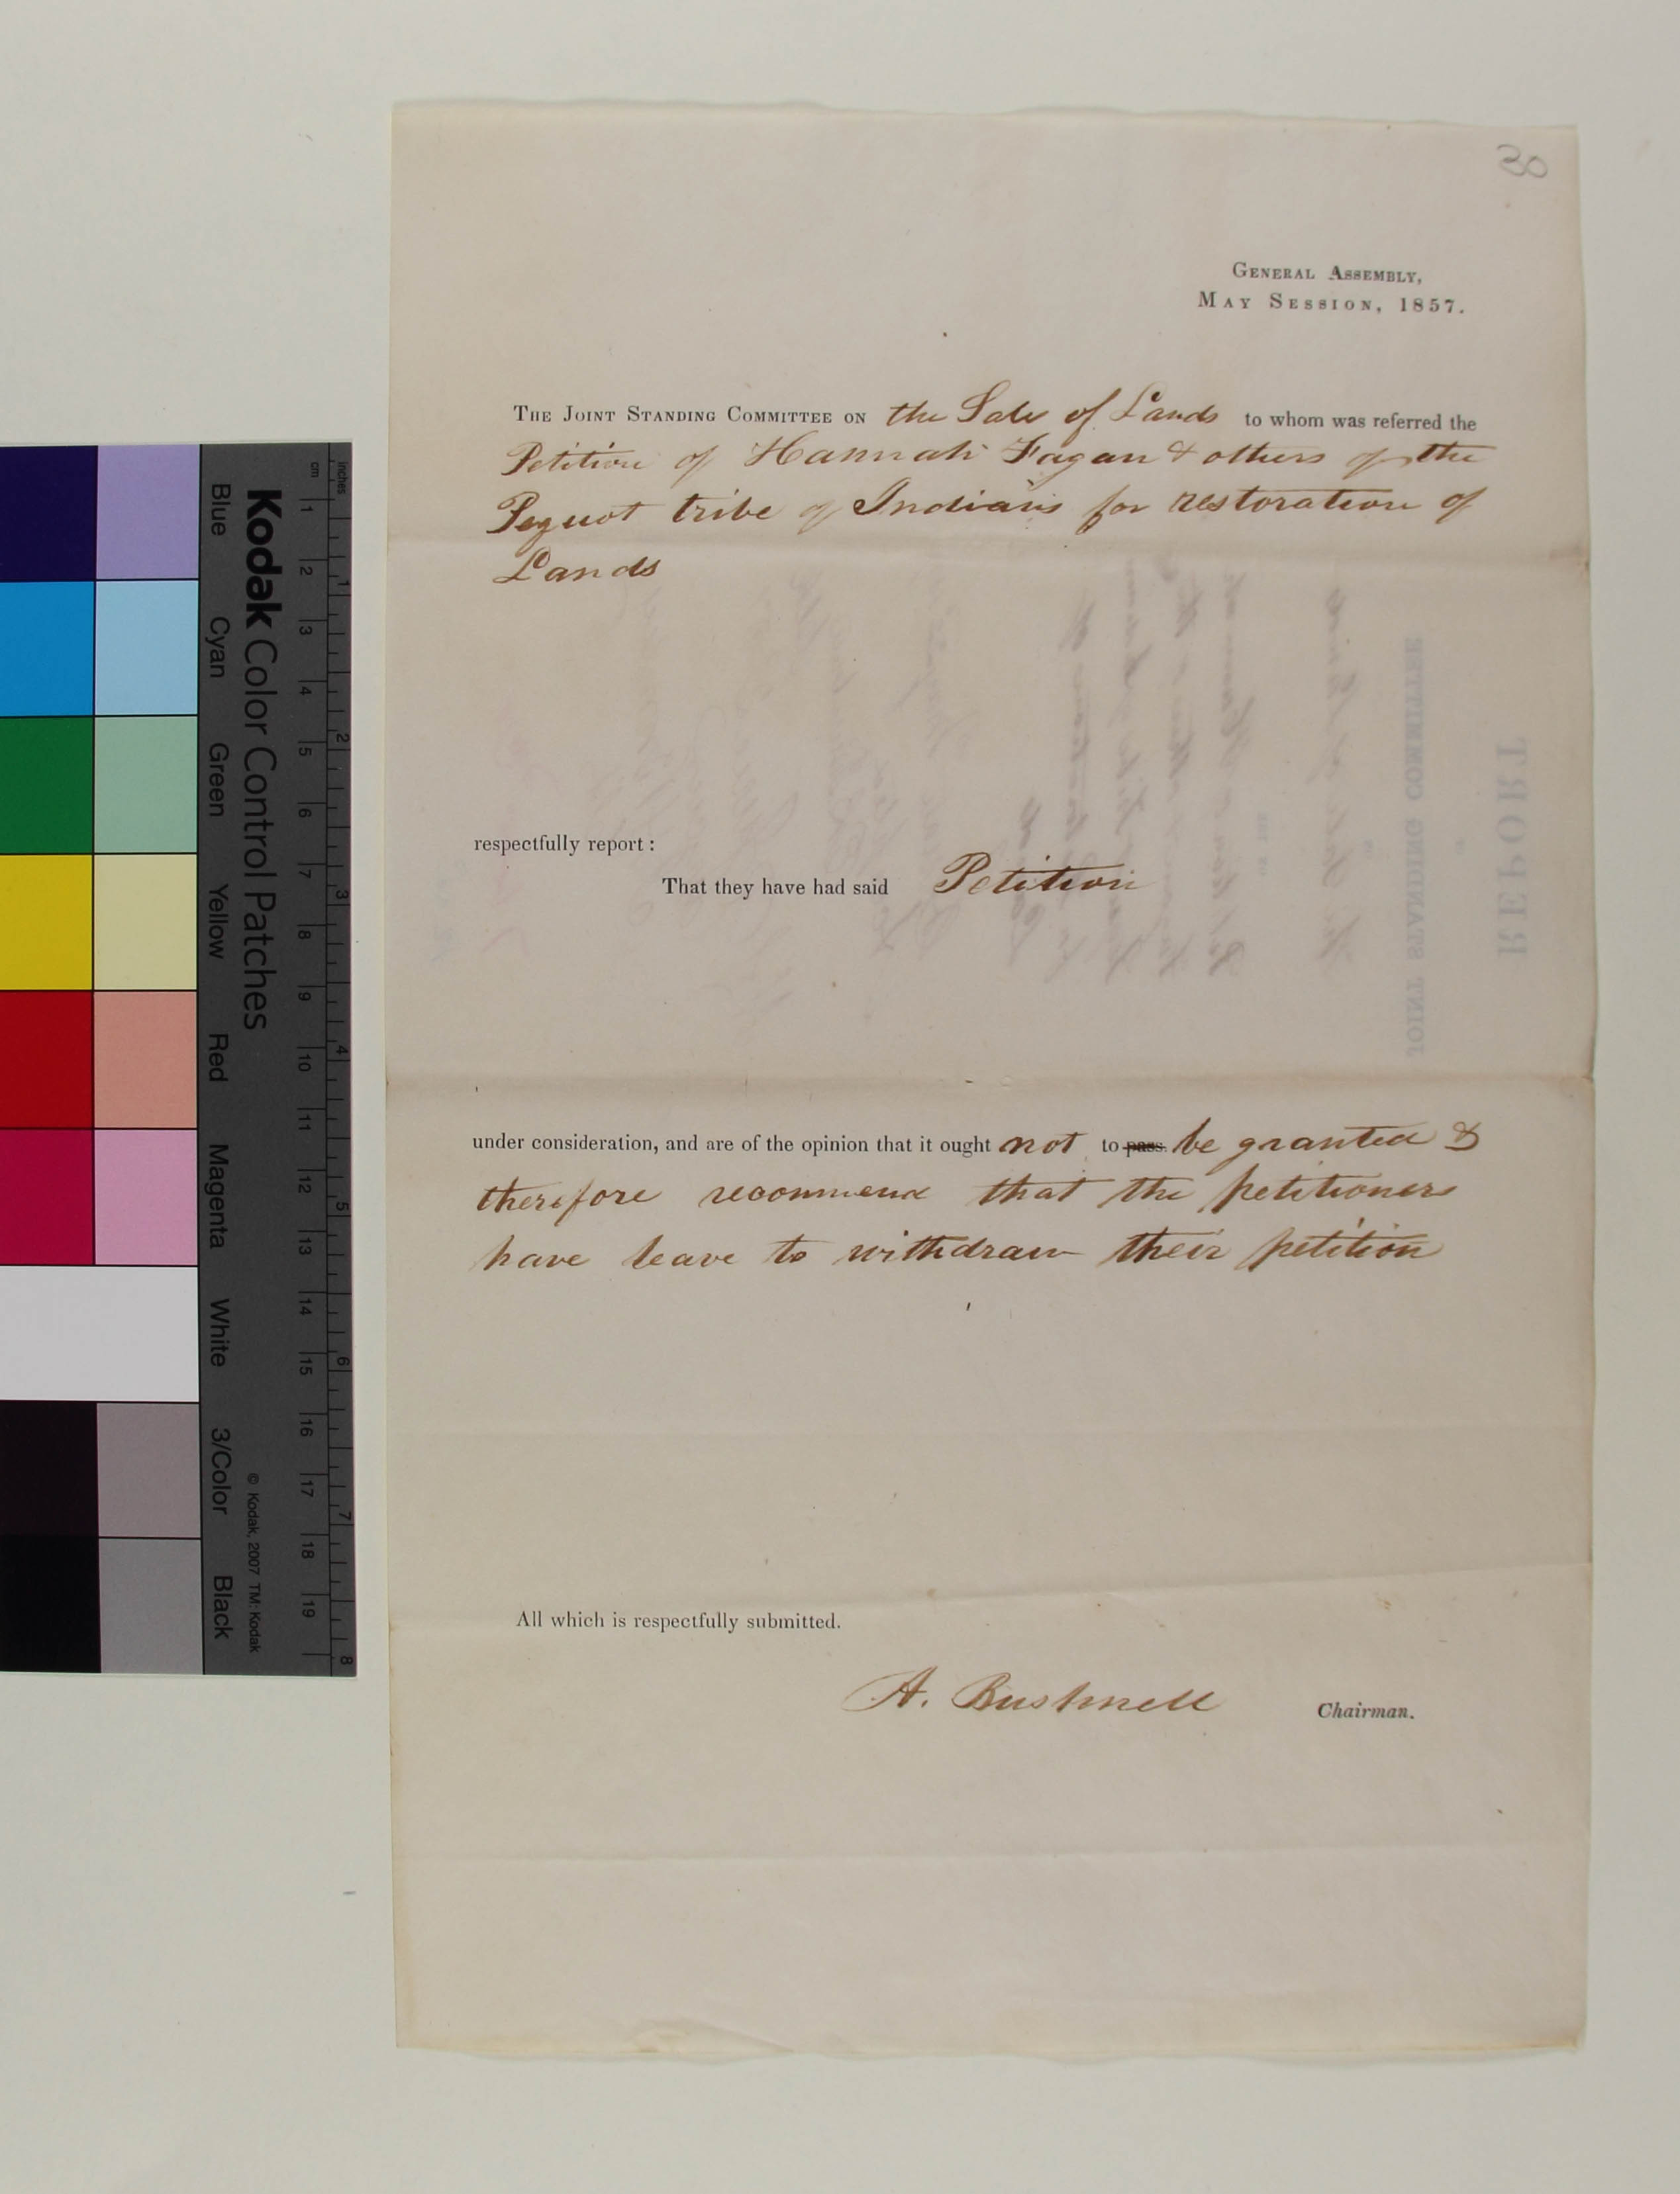 30
GENERAL ASSEMBLY,
MAY SESSION, 1857.
THE JOINT STANDING COMMITTEE ON the Sale of Lands to whom was referred the
Petition of Hannah Fagan & others of the
Pequot tribe of Indians for restoration of
Lands
respectfully report :
That they have had said Petition
under consideration, and are of the opinion that it ought not to pass. be granted &
therefore recommend that the petitioners
have leave to withdraw their petition
All which is respectfully submitted.
A. Bushnell Chairman.
REPORT
JOINT STANDING COMMITTEE
Kodak Color Control Patches
Blue Cyan Green Yellow Red Magenta White 3/Color Black
© Kodak, 2007 TM: Kodak
cm 1 2 3 4 5 6 7 8 9 10 11 12 13 14 15 16 17 18 19
inches 1 2 3 4 5 6 7 8